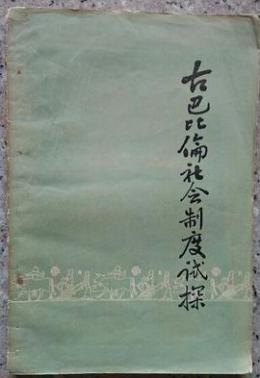 古巴比倫社会制度试探